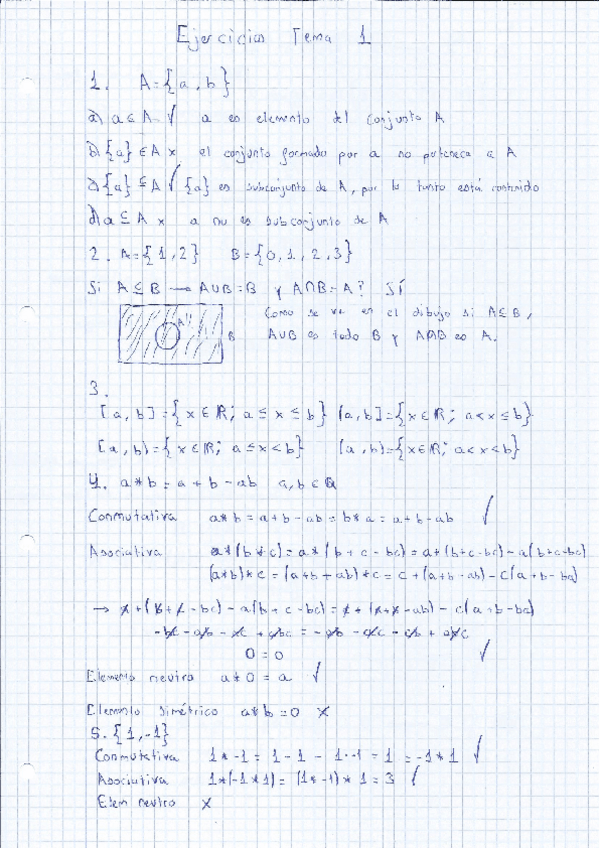 Ejercicios Tema 1
1. A={a,b}
a) a∈A ✓ a es elemento del conjunto A
b) {a}∈A × el conjunto formado por a no pertenece a A
c) {a}⊆A ✓ {a} es subconjunto de A, por lo tanto está contenido
d) a⊆A × a no es subconjunto de A
2. A={1,2} B={0,1,2,3}
Si A⊆B → A∪B=B y A∩B=A? SÍ
Como se ve en el dibujo si A⊆B,
A∪B es todo B y A∩B es A.
A
B
3.
[a,b]={x∈ℝ; a≤x≤b} (a,b]={x∈ℝ; a<x≤b}
[a,b)={x∈ℝ; a≤x<b} (a,b)={x∈ℝ; a<x<b}
4. a*b=a+b-ab a,b∈ℚ
Conmutativa a*b=a+b-ab=b*a=a+b-ab ✓
Asociativa a*(b*c)=a*(b+c-bc)=a+(b+c-bc)-a(b+c-bc)
(a*b)*c=(a+b+ab)*c=c+(a+b-ab)-c(a+b-ba)
→ a+(b+c-bc)-a(b+c-bc)=c+(a+b-ab)-c(a+b-bc)
-bc-ab-ac+abc=-ab-ac-cb+abc
0=0 ✓
Elemento neutro a*0=a ✓
Elemento simétrico a*b=0 ×
5. {1,-1}
Conmutativa 1*-1=1-1-1·-1=1=-1*1 ✓
Asociativa 1*(-1*1)=(1*-1)*1=3 ✓
Elem neutro ×